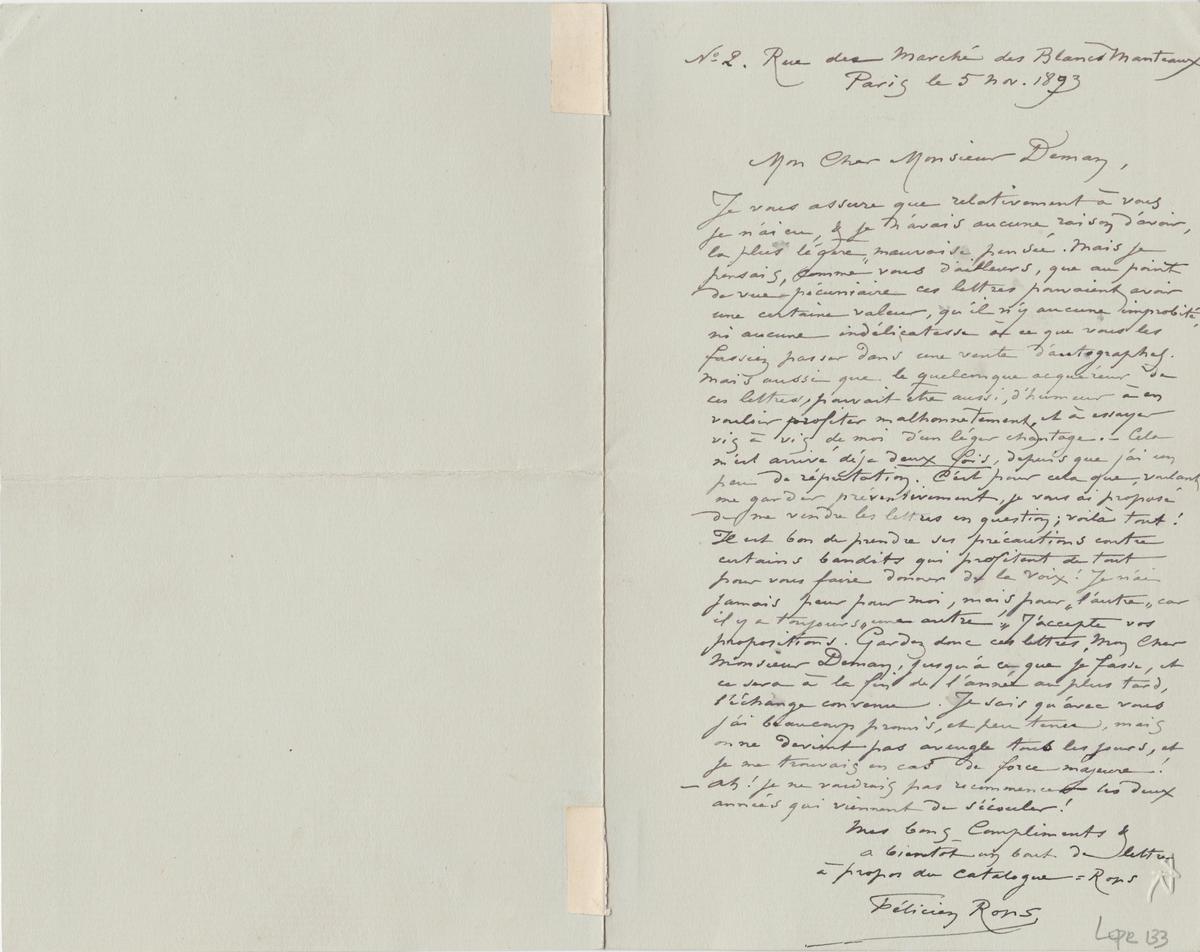 No 2. Rue des Marché des Blancs Manteaux
Paris le 5 Nov. 1893
Mon Cher Monsieur Deman,
Je vous assure que relativement à vous
je n'ai eu, & je n'avais aucune raison d'avoir,
la plus légère „mauvaise pensée". Mais je
pensais, comme vous d'ailleurs, que au point
de vue pécuniaire ces lettres pouvaient avoir
une certaine valeur, qu'il n'y aucune improbité
ni aucune indélicatesse à ce que vous les
fassiez passer dans une vente d'autographes.
Mais aussi que le quelconque acquéreur de
ces lettres, pouvait etre aussi, d'humeur à en
vouloir profiter malhonnetement, et à essayer
vis à vis de moi d'un léger chantage. – Cela
m'est arrivé déja deux fois, depuis que j'ai un
peu de réputation. C'est pour cela que, voulant
me garder préventivement, je vous ai proposé
de me vendre les lettres en question; voilà tout!
Il est bon de prendre ses précautions contre
certains bandits qui profitent de tout
pour vous faire donner de la voix! Je n'ai
jamais peur pour moi, mais pour „l'autre„ car
il y a toujours „une autre„! J'accepte vos
propositions. Gardez donc ces lettres, Mon Cher
Monsieur Deman, jusqu'à ce que je fasse, et
ce sera à la fin de l'année au plus tard,
l'échange convenu. Je sais qu'avec vous
j'ai beaucoup promis, et peu tenu, mais
on ne devient pas aveugle tous les jours, et
je me trouvais en cas de force majeure!
– Ah! je ne voudrais pas recommencer les deux
années qui viennent de s'écouler!
Mes bons Compliments &
a bientot un bout de lettre
à propos du catalogue = Rops
Félicien Rops
Lepr 133